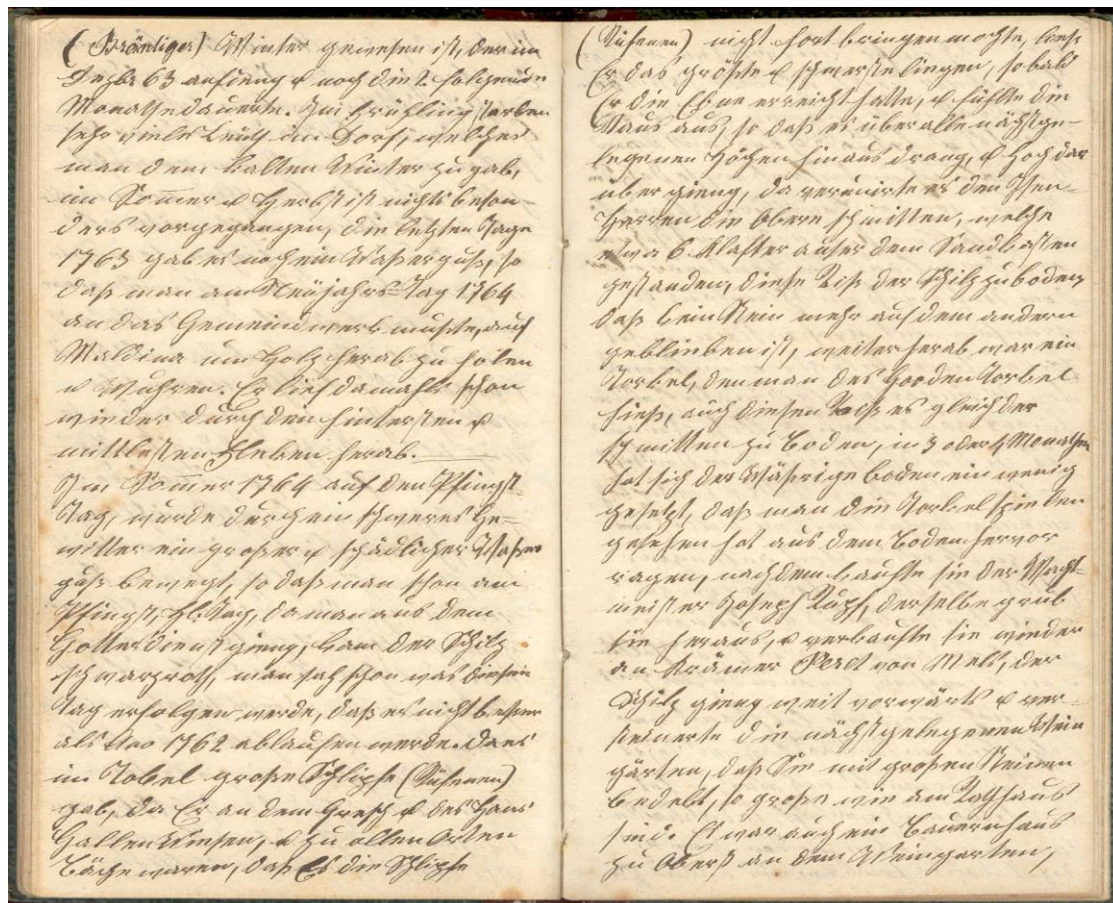 (Brändliger) Winter gewesen ist, der im
Dezbr 63 anfieng & noch die 2 folgenden
Monathe dauerte. Im Frühling starben
sehr viele Leuth im Dorf, welches
man dem kalten Winter zu gab,
im Som̄er & Herbst ist nichts beson-
ders vorgegangen, die letzten Tage
1763 gab es noch ein Waßerguß, so
daß man am Neüjahrs=Tag 1764
an das Gemeindwerk mußte, auf
Maldina um Holz herab zu holen
& Wuhren. Er lief damahls schon
wieder durch den hintersten &
mittlesten Kleben herab.
Im Som̄er 1764 auf den Pfingst-
Tag, wurde durch ein schweres Ge=
witter ein großer & schädlicher Waßer
guß bewegt, so daß man schon am
Pfingst, hl. Tag, da man aus dem
Gottesdienst gieng, kam der Schilz
schwarzroth, man sah schon was diesen
Tag erfolgen werde, daß es nicht beßer
als Ano 1762 ablaufen werde. Da es
im Tobel große Schlipfe (Rüfenen)
gab, da Er an dem Gresch & des Hans
Gallen Wiesen, & zu allen Orten
Bäche waren, daß Es die Schlipfe
(Rüfenen) nicht fort bringen mochte, ließ
Er das größte & schwerste liegen, sobald
Er die Ebne erreicht hatte, & füllte die
aus, so daß es über alle nächstge-
legenen Höchen hinaus drang, & hoch dar
über gieng, da reruinirte es den Isen-
Herren die obere Schmitten, welche
etwa 6. Klafter außer dem Sandkasten
gestanden, diese Riß der Schilz zu boden
daß kein Stein mehr auf dem andern
geblieben ist, weiter herab war ein
Torkel, den man des Torkel
hieß, auch diesen Riß es gleich der
schmitten zu boden, in 3 oder 4 Monathen
hat sich der Wäßrige boden ein wenig
gesetzt, daß man die Torkelspielen
gesehen hat aus dem boden hervor
ragen, nachdem kaufte sie der Wacht-
meister Joseph Kupf, derselbe grub
sie heraus, & verkaufte sie wieder
an Krämer Perct von Mels, der
Schilz gieng weit vorwärts & ver-
steinerte die nächstgelegenen Wein
gärten, daß Sie mit großen Steinen
bedekt, so große wie am Rathhaus
sind. Es war auch ein Bauernhaus
zu Oberst an dem Weingarten,